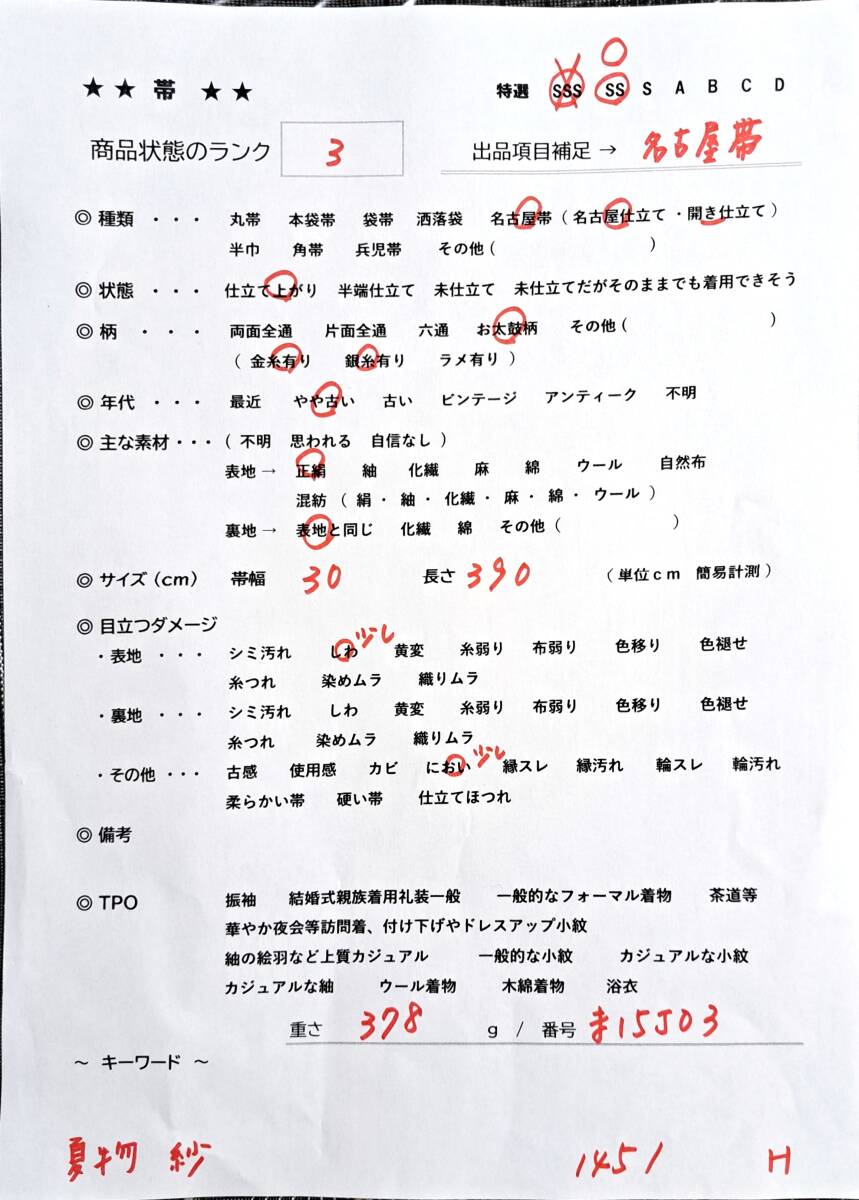 ★ ★ 帯 ★ ★ 特選 SSS SS S A B C D
商品状態のランク 3 出品項目補足 → 名古屋帯
◎ 種類 ・・・ 丸帯 本袋帯 袋帯 洒落袋 名古屋帯 ( 名古屋仕立て ・ 開き仕立て )
半巾 角帯 兵児帯 その他 ( )
◎ 状態 ・・・ 仕立て上がり 半端仕立て 未仕立て 未仕立てだがそのままでも着用できそう
◎ 柄 ・・・ 両面全通 片面全通 六通 お太鼓柄 その他 ( )
( 金糸有り 銀糸有り ラメ有り )
◎ 年代 ・・・ 最近 やや古い 古い ビンテージ アンティーク 不明
◎ 主な素材・・・ ( 不明 思われる 自信なし )
表地 → 正絹 紬 化繊 麻 綿 ウール 自然布
混紡 ( 絹 ・ 紬 ・ 化繊 ・ 麻 ・ 綿 ・ ウール )
裏地 → 表地と同じ 化繊 綿 その他 ( )
◎ サイズ (cm) 帯幅 30 長さ 390 ( 単位cm 簡易計測 )
◎ 目立つダメージ
・表地 ・・・ シミ汚れ しわ 少し 黄変 糸弱り 布弱り 色移り 色褪せ
糸つれ 染めムラ 織りムラ
・裏地 ・・・ シミ汚れ しわ 黄変 糸弱り 布弱り 色移り 色褪せ
糸つれ 染めムラ 織りムラ
・その他 ・・・ 古感 使用感 カビ におい 少し 縁スレ 縁汚れ 輪スレ 輪汚れ
柔らかい帯 硬い帯 仕立てほつれ
◎ 備考
◎ TPO 振袖 結婚式親族着用礼装一般 一般的なフォーマル着物 茶道等
華やか夜会等訪問着、付け下げやドレスアップ小紋
紬の絵羽など上質カジュアル 一般的な小紋 カジュアルな小紋
カジュアルな紬 ウール着物 木綿着物 浴衣
重さ 378 g / 番号 15J03
～ キーワード ～
夏物 紗 1451 H